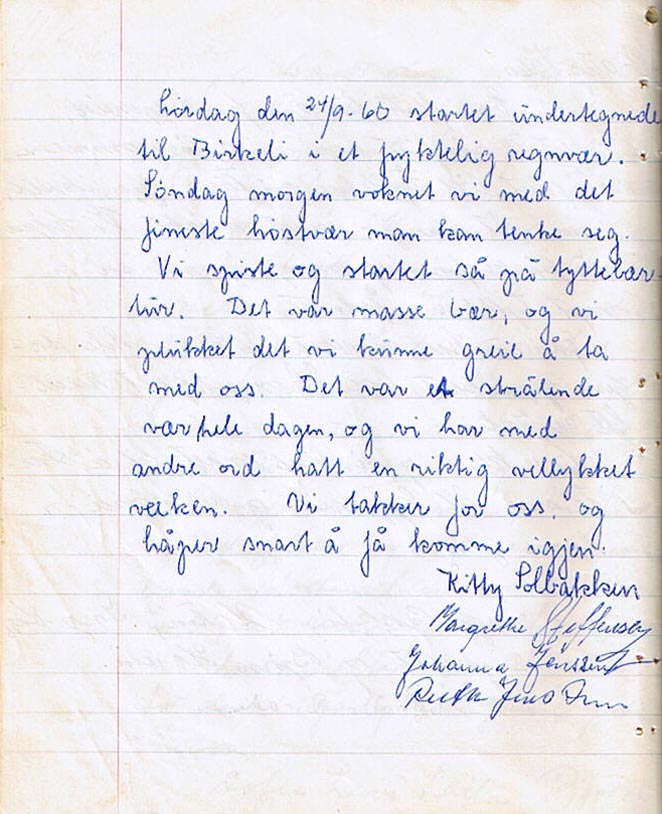 Lördag den 24/9-60 startet undertegnede
til Birkeli i et fryktelig regnvær.
Söndag morgen voknet vi med det
fineste höstvær man kan tenke seg.
Vi spiste og startet så på tyttebær
tur. Det var masse bær, og vi
plukket det vi kunne greie å ta
med oss. Det var et strålende
vær hele dagen, og vi har med
andre ord hatt en riktig vellykket
veeken. Vi takker for oss, og
håper snart å få komme igjen.
Kitty Solbakken
Margrethe Steffensen
Johanna Jenssen
Ruth